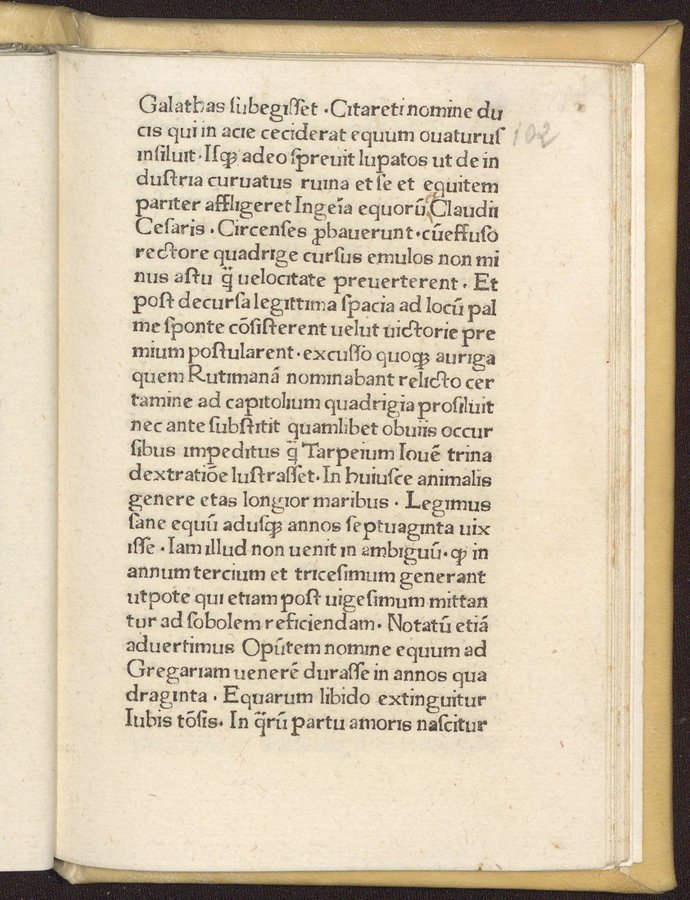 Galathas ſubegiſſet . Citareti nomine du
cis qui in acie ceciderat equum ouaturuſ
inſiluit . Iſqꝫ adeo ſpreuit lupatos ut de in
duſtria curuatus ruina et ſe et equitem
pariter affligeret Ingēia equorū Claudii
Ceſaris . Circenſes ꝓbauerunt . cū effuſo
rectore quadrige curſus emulos non mi
nus aſtu q̄̈ uelocitate preuerterent . Et
poſt decurſa legittima ſpacia ad locū pal
me ſponte cōſiſterent uelut uictorie pre
mium poſtularent . excuſſo quoqꝫ auriga
quem Rutimanā nominabant relicto cer
tamine ad capitolium quadrigia proſiluit
nec ante ſubſtitit quamlibet obuiis occur
ſibus impeditus q̄̈ Tarpeium Iouē trina
dextratiōe luſtraſſet . In huiuſce animalis
genere etas longior maribus . Legimus
ſane equū aduſqꝫ annos ſeptuaginta uix
iſſe . Iam illud non uenit in ambiguū . ꝙ in
annum tercium et triceſimum generant
utpote qui etiam poſt uigeſimum mittan
tur ad ſobolem reficiendam . Notatū etiā
aduertimus Opūtem nomine equum ad
Gregariam uenerē duraſſe in annos qua
draginta . Equarum libido extinguitur
Iubis tōſis . In q̄rū partu amoris naſcitur
102